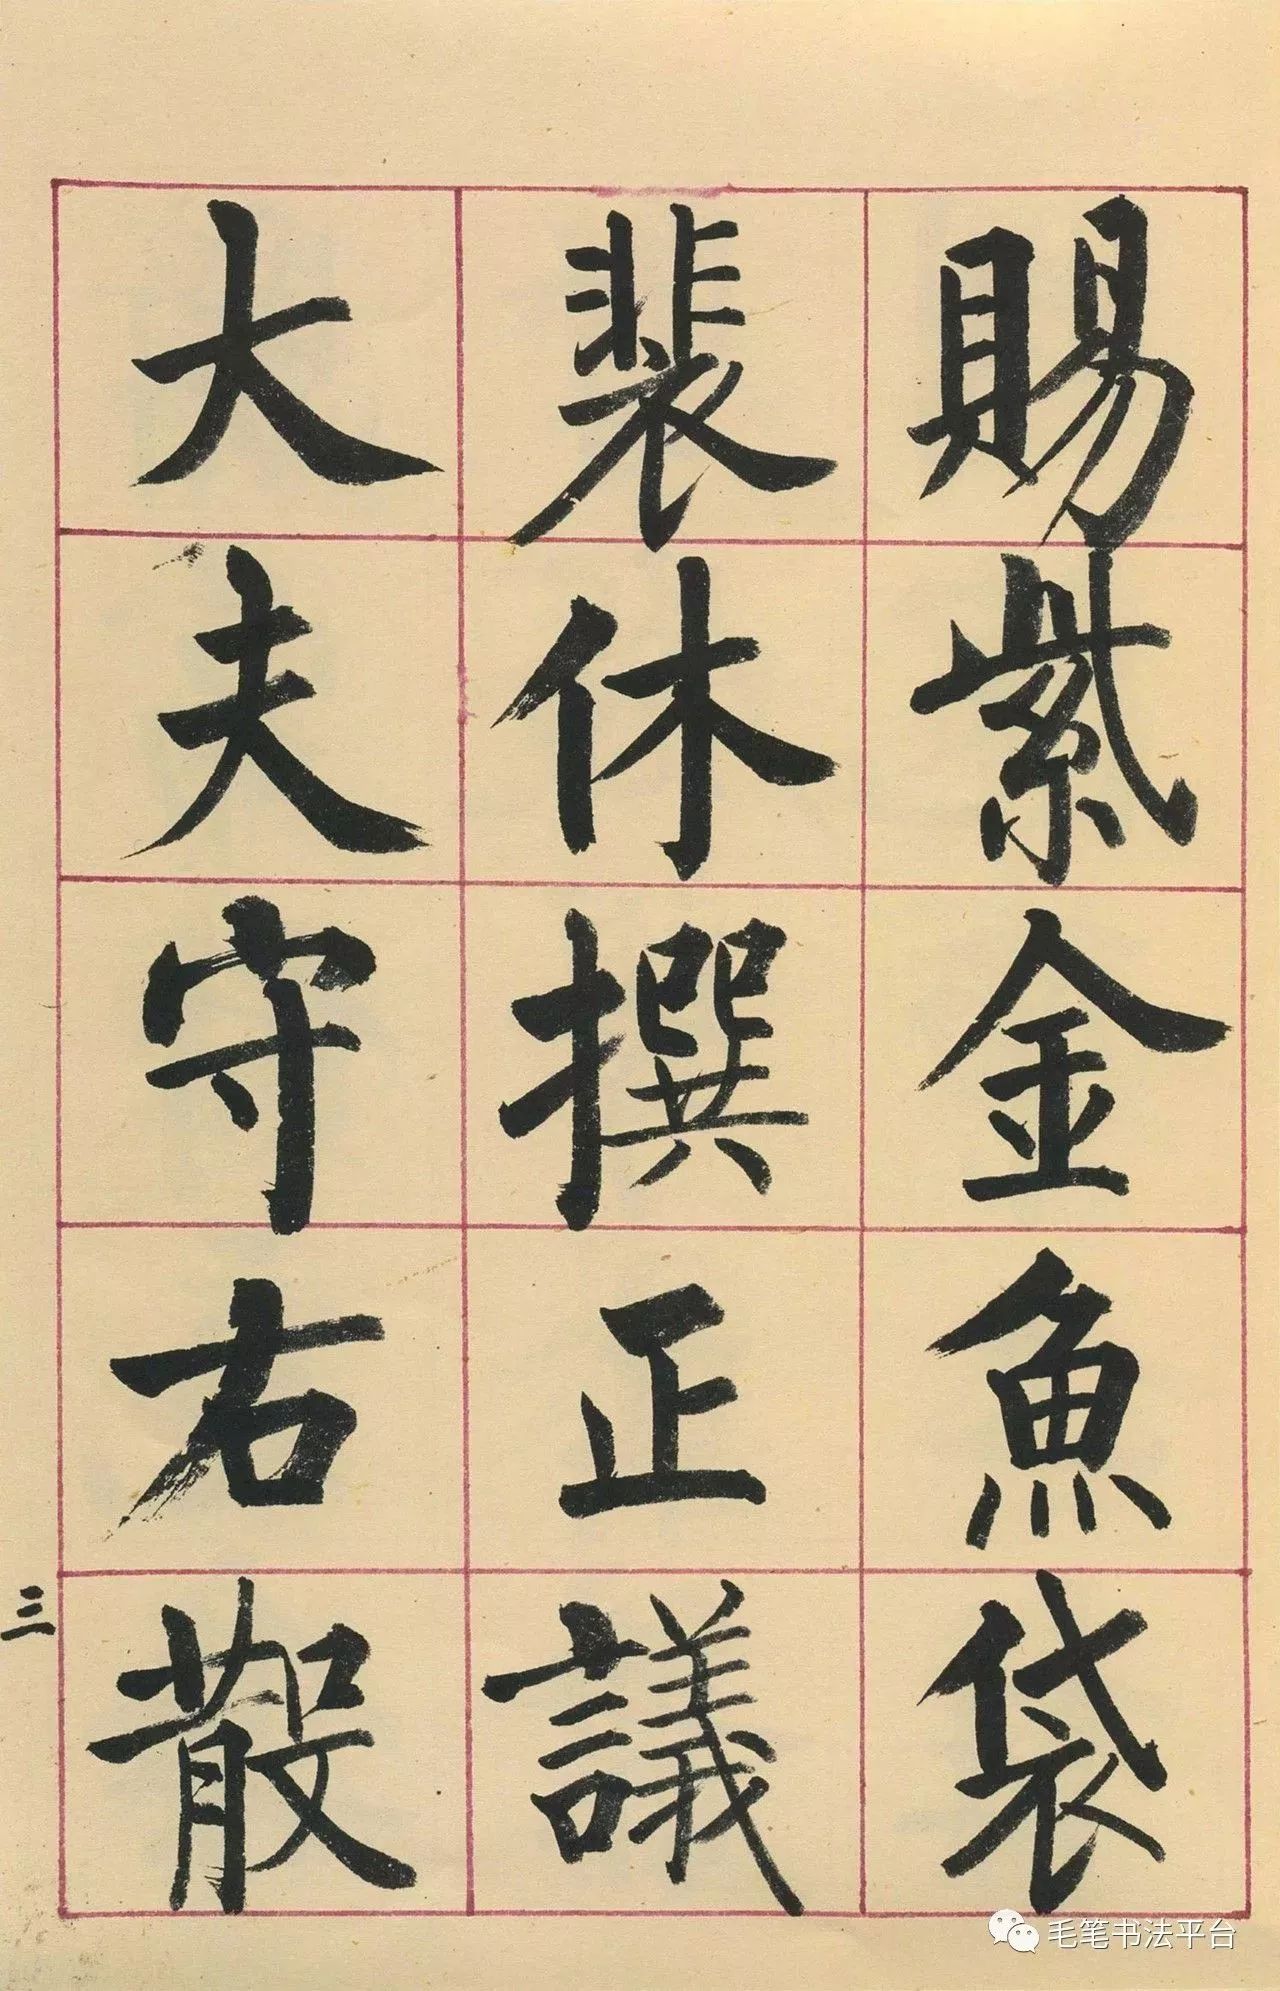 賜紫金魚袋
裴休撰正議
大夫守右散
三
毛笔书法平台